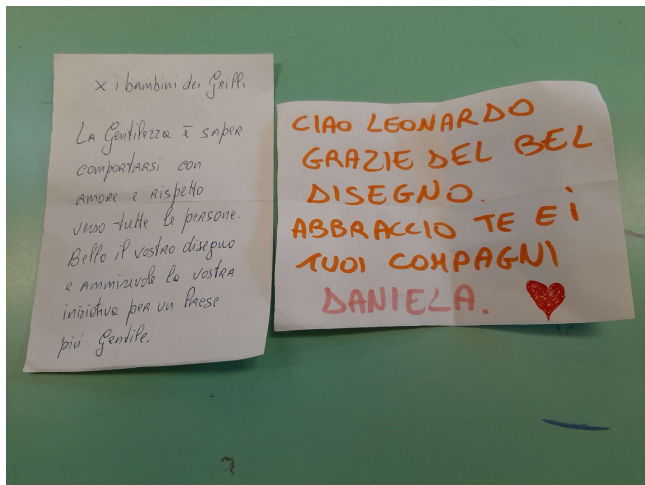 x i bambini dei Grilli
La Gentilezza è saper
comportarsi con
amore e rispetto
verso tutte le persone.
Bello il vostro disegno
e ammirevole la vostra
iniziativa per un Paese
più Gentile.
CIAO LEONARDO
GRAZIE DEL BEL
DISEGNO.
ABBRACCIO TE E i
TUOI COMPAGNI
DANIELA.